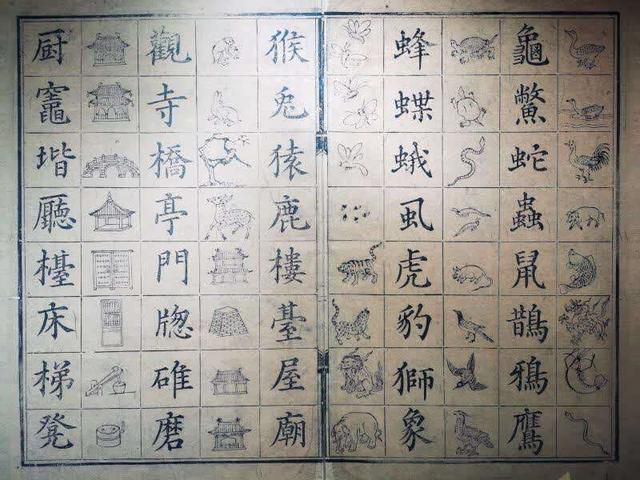 龜鱉蛇蟲鼠鵲鴉鷹
蜂蝶蛾虱虎豹獅象
猴兎猿鹿樓臺屋廟
觀寺橋亭門牕碓磨
厨竈堦廳檯床梯凳